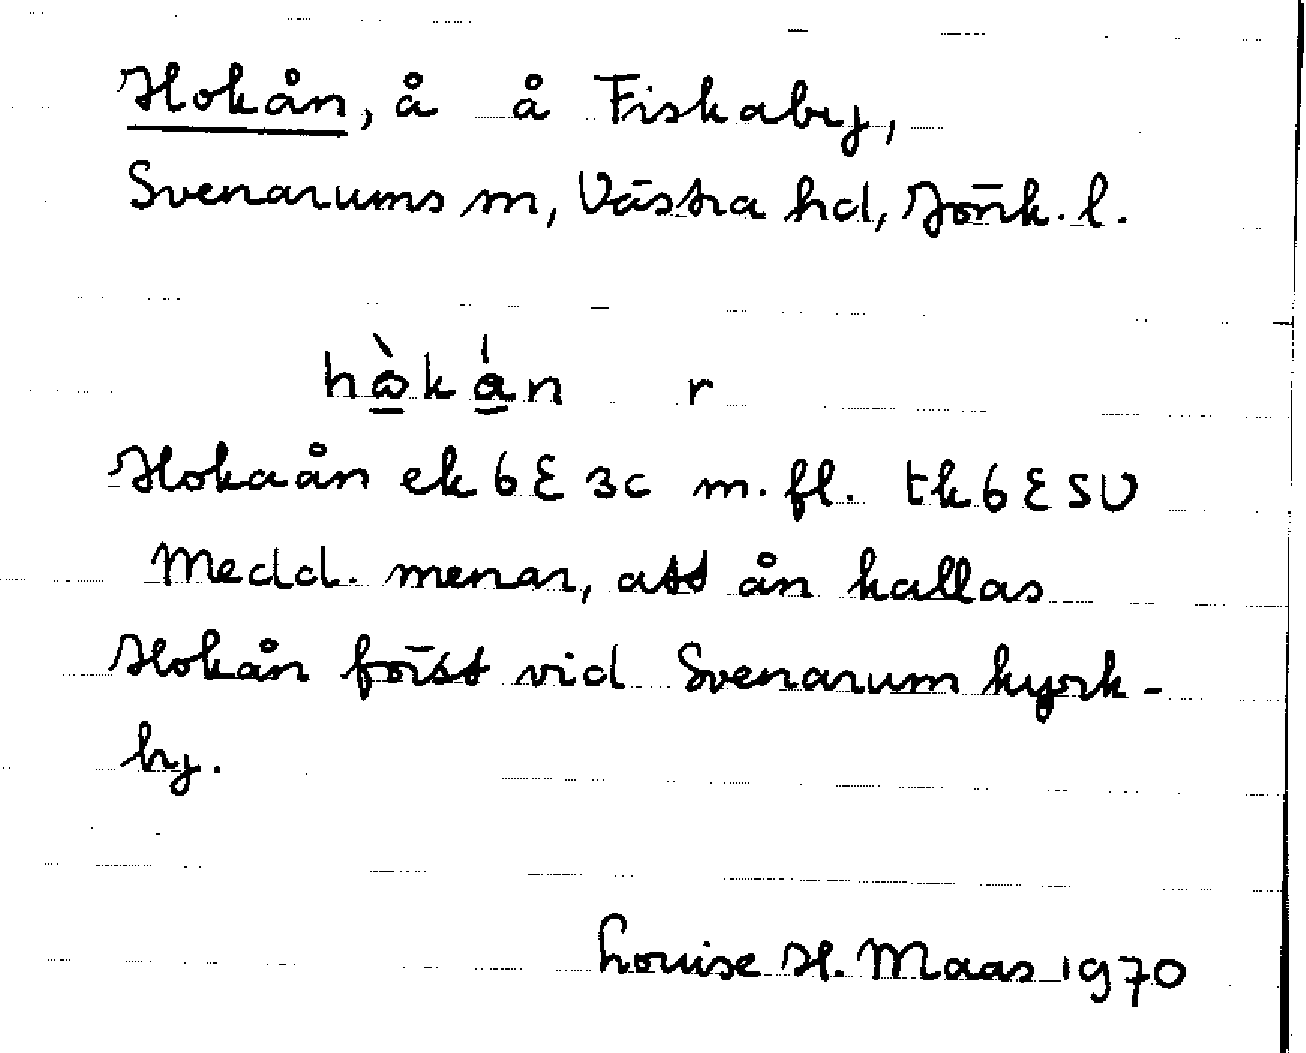 Hokån, å å Fiskaby,
Svenarums sn, Västra hd, Jönk. l.
r
Hokaån ek 6E 3c m. fl. tk 6E SV
Medd. menar, att ån kallas
Hokån först vid Svenarum kyrk-
by.
Louise H. Maas 1970